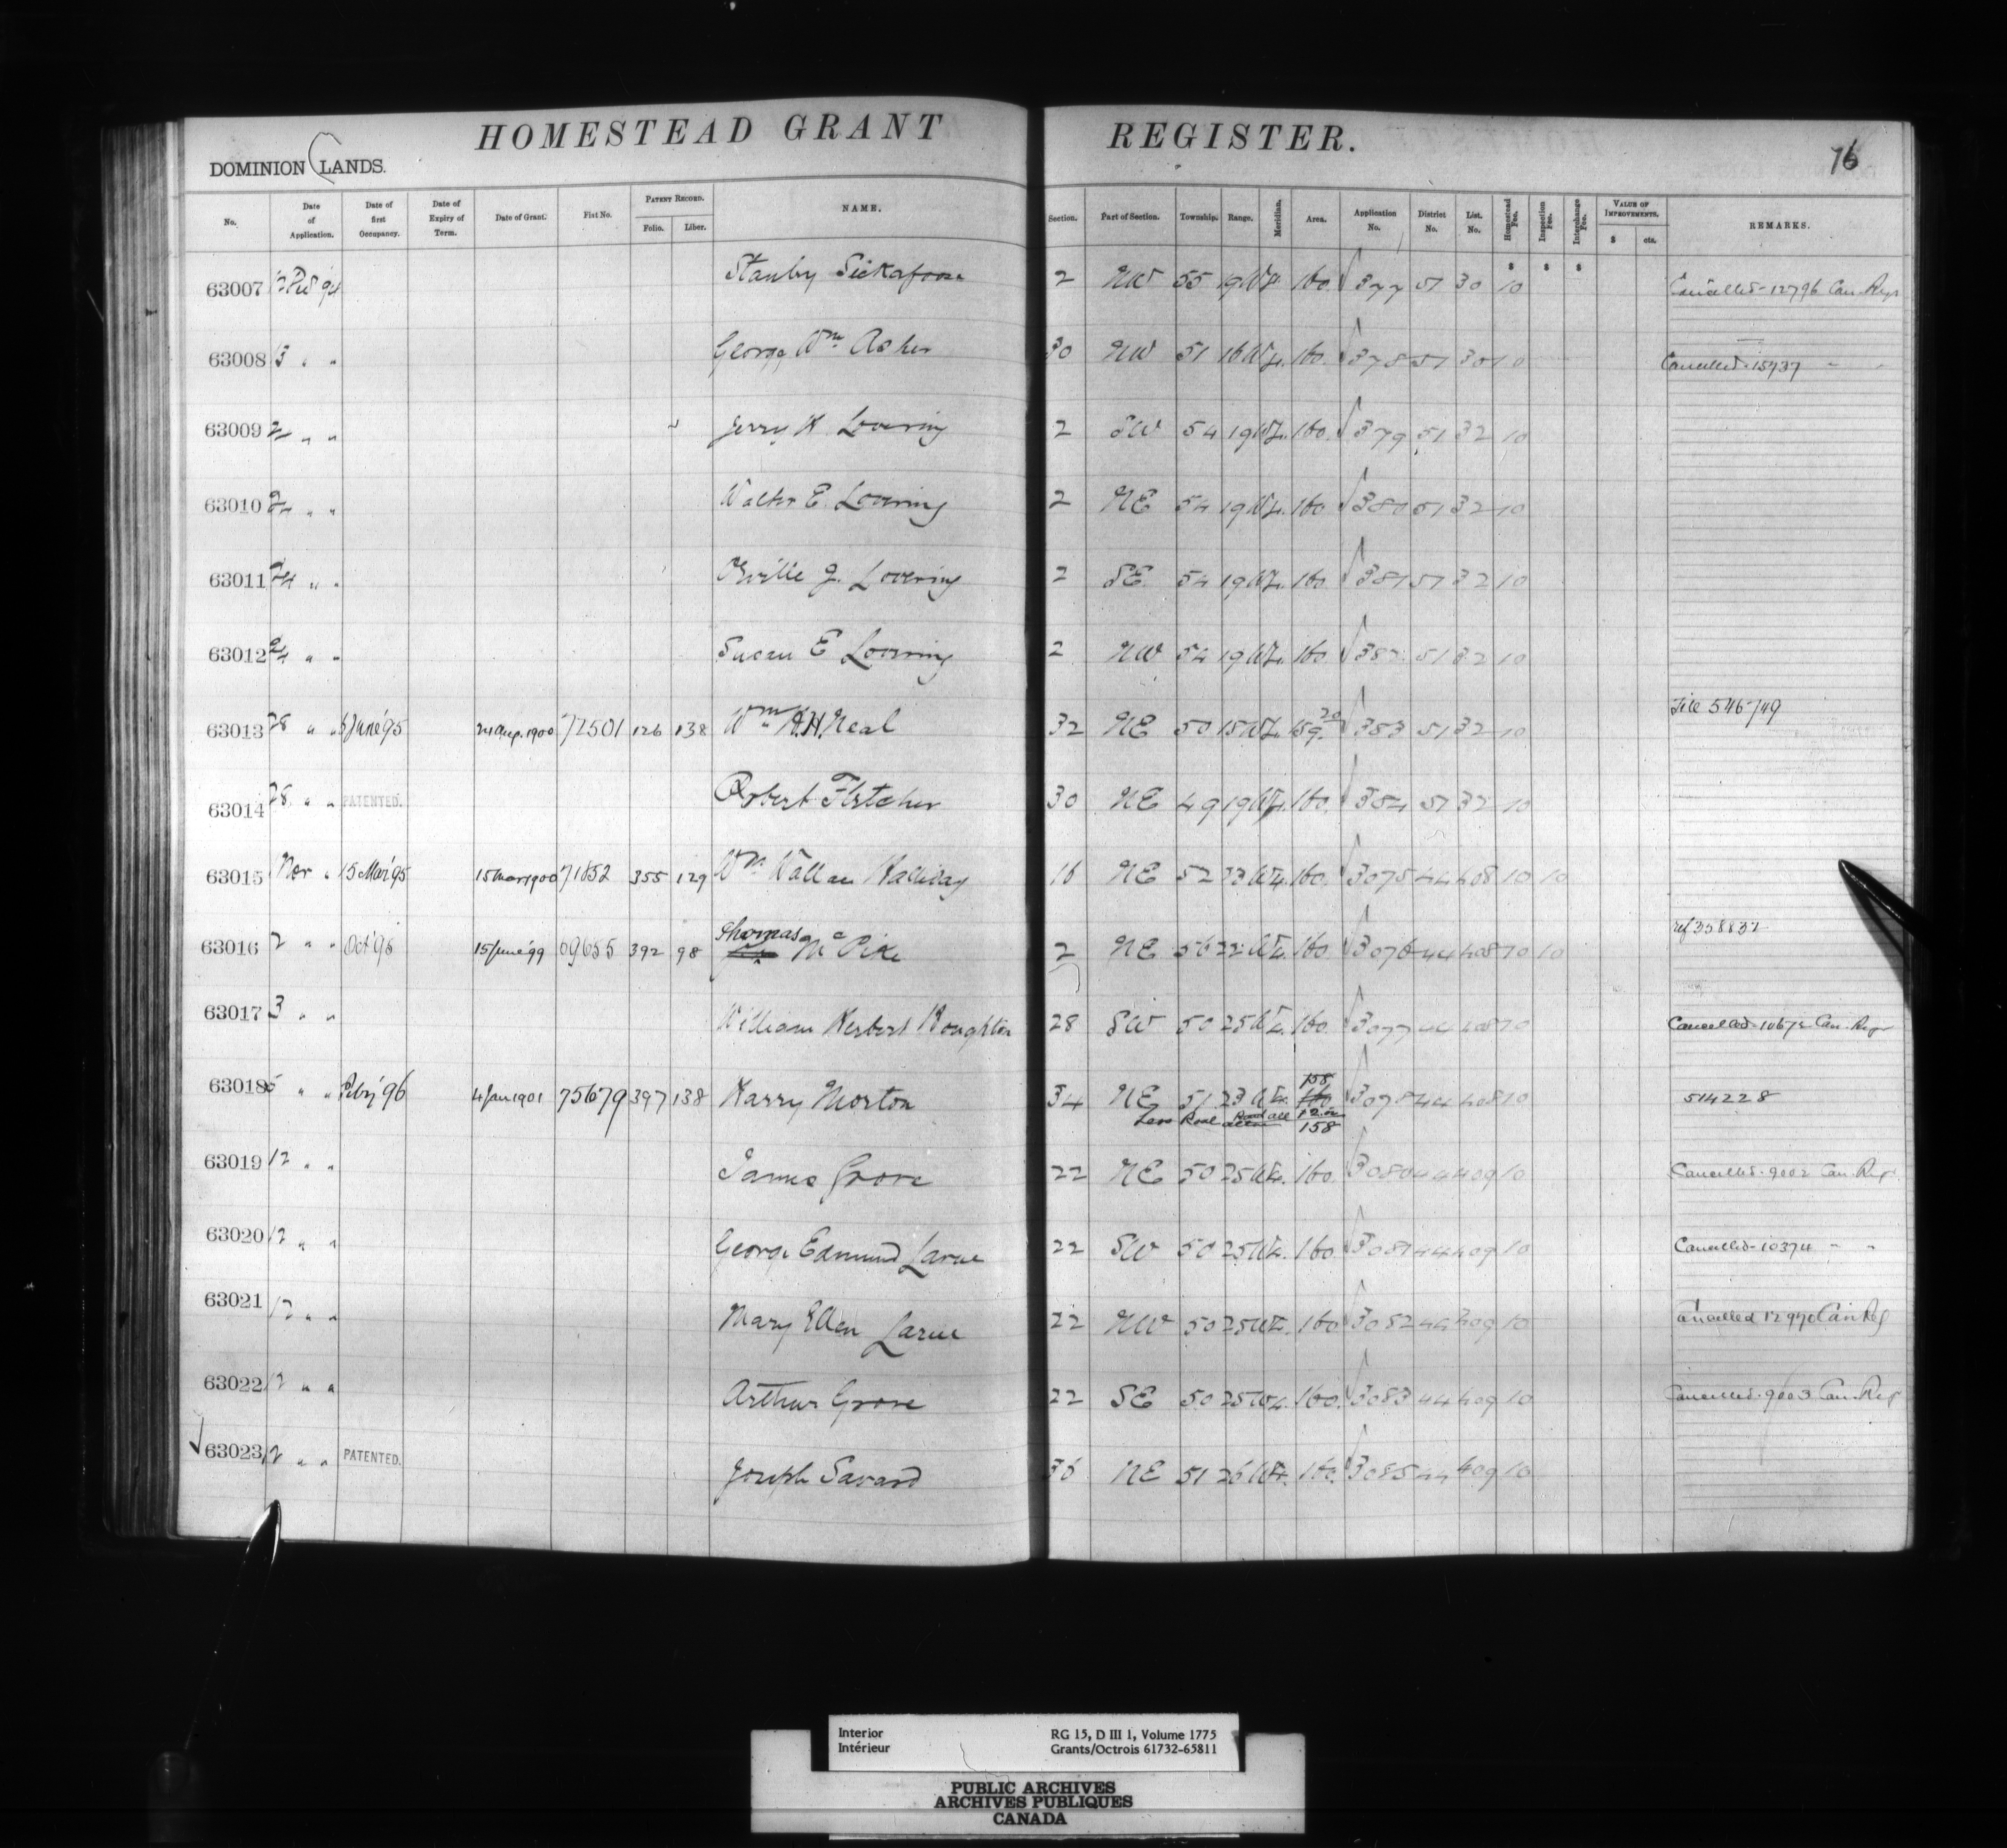 HOMESTEAD GRANT REGISTER.
76
DOMINION LANDS.
No. Date of Application. Date of first Occupancy. Date of Expiry of Term. Date of Grant. Fiat No. PATENT RECORD. Folio. Liber. NAME. Section. Part of Section. Township. Range. Meridian. Area. Application No. District No. List. No. Homestead Fee. Inspection Fee. Interchange Fee. VALUE OF IMPROVEMENTS. $ cts. REMARKS.
$ $ $
63007 94 Stanley Sickafoose 2 NW 55 19 W4. 160. 377 51 30 10 Cancelled-12796 Can. Regr
63008 3 " " George Wm Asher 30 NW 51 16 W4. 160. 378 51 30 10 Cancelled-15937 " "
63009 " " Jerry K Lovering 2 SW 54 19 W4. 160. 379 51 32 10
63010 24 " " Walter E. Lovering 2 NE 54 19 W4. 160. 380 51 32 10
63011 24 " " Orville J. Lovering 2 SE 54 19 W4. 160 381 51 32 10
63012 24 " " Susan E Lovering 2 NW 54 19 W4. 160. 382 51 32 10
63013 28 " " June '95 24 Aug. 1900 72501 126 138 Wm H.H. Neal 32 NE 50 15 W4. 159.20 383 51 32 10 File 546749
63014 28 " " PATENTED. Robert Fletcher 30 NE 49 19 W4. 160. 384 51 32 10
63015 Nov " 15 Mar '95 15 Mar 1900 71852 355 129 Wm Wallace Halliday 16 NE 52 23 W4. 160. 3075 44 408 10 10
63016 2 " " Oct '95 15 June '99 69655 392 98 Thomas McPike 2 NE 56 22 W4. 160. 3076 44 408 10 10 ref 358832
63017 3 " " William Herbert Houghton 28 SW 50 25 W4. 160. 3077 44 408 10 Cancelled-10672 Can. Regr
63018 5 " " Feby '96 4 Jan 1901 75679 397 138 Harry Morton 34 NE 51 23 W4. 158 160 3078 44 408 10 514228
Less Road all 2.00
158
63019 12 " " James Grove 22 NE 50 25 W4. 160. 3080 44 409 10 Cancelled-9002 Can. Regr
63020 12 " " George Edmund Larue 22 SW 50 25 W4. 160 3081 44 409 10 Cancelled-10374 " "
63021 12 " " Mary Ellen Larue 22 NW 50 25 W4. 160 3082 44 409 10 Cancelled 12970 Can Reg
63022 12 " " Arthur Grove 22 SE 50 25 W4. 160. 3083 44 409 10 Cancelled-9003 Can. Regr
✓ 63023 12 " " PATENTED. Joseph Savard 36 NE 51 26 W4. 160. 3085 44 409 10
Interior RG 15, D III 1, Volume 1775
Intérieur Grants/Octrois 61732-65811
PUBLIC ARCHIVES
ARCHIVES PUBLIQUES
CANADA